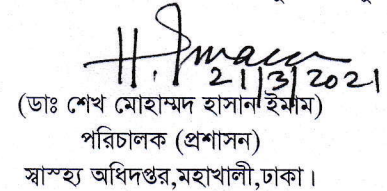 21/3/2021
(ডাঃ শেখ মোহাম্মদ হাসান ইমাম)
পরিচালক (প্রশাসন)
স্বাস্হ্য অধিদপ্তর,মহাখালী,ঢাকা।